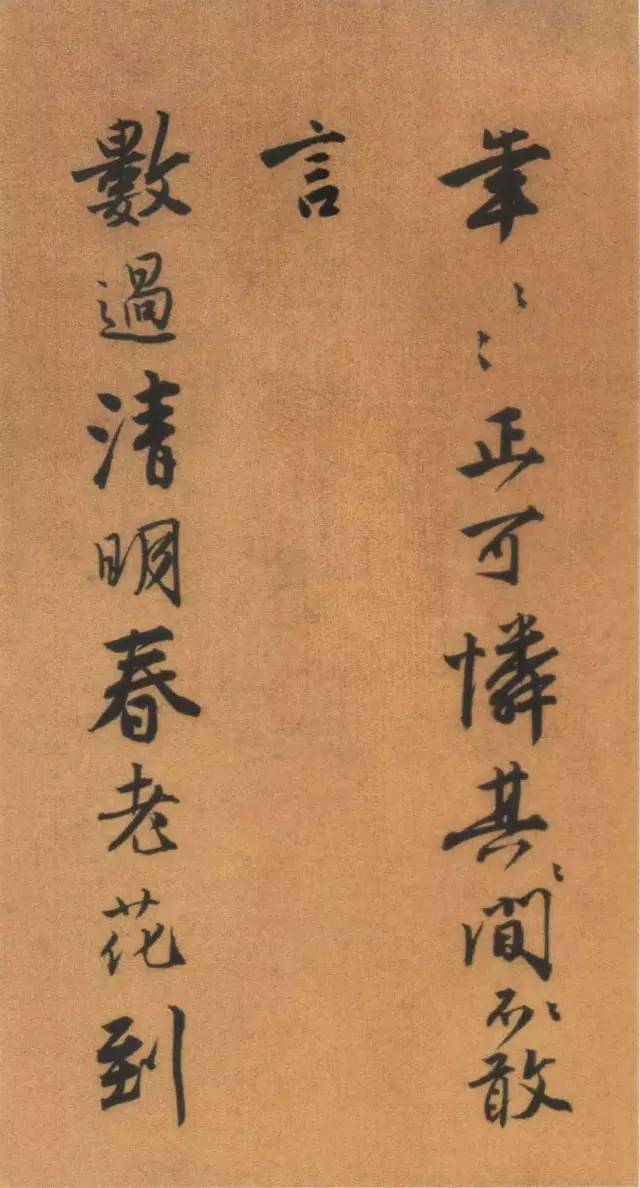 年〻〻正可憐其〻間不〻敢
言
數過清明春老花到